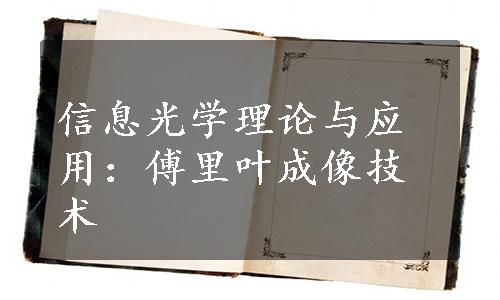 信息光学理论与应
用：傅里叶成像技
术